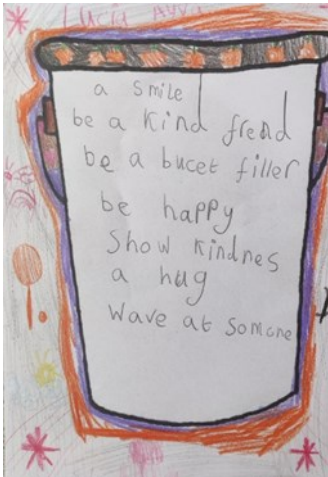 a smile
be a kind frend
be a bucet filler
be happy
Show kindnes
a hug
wave at somone